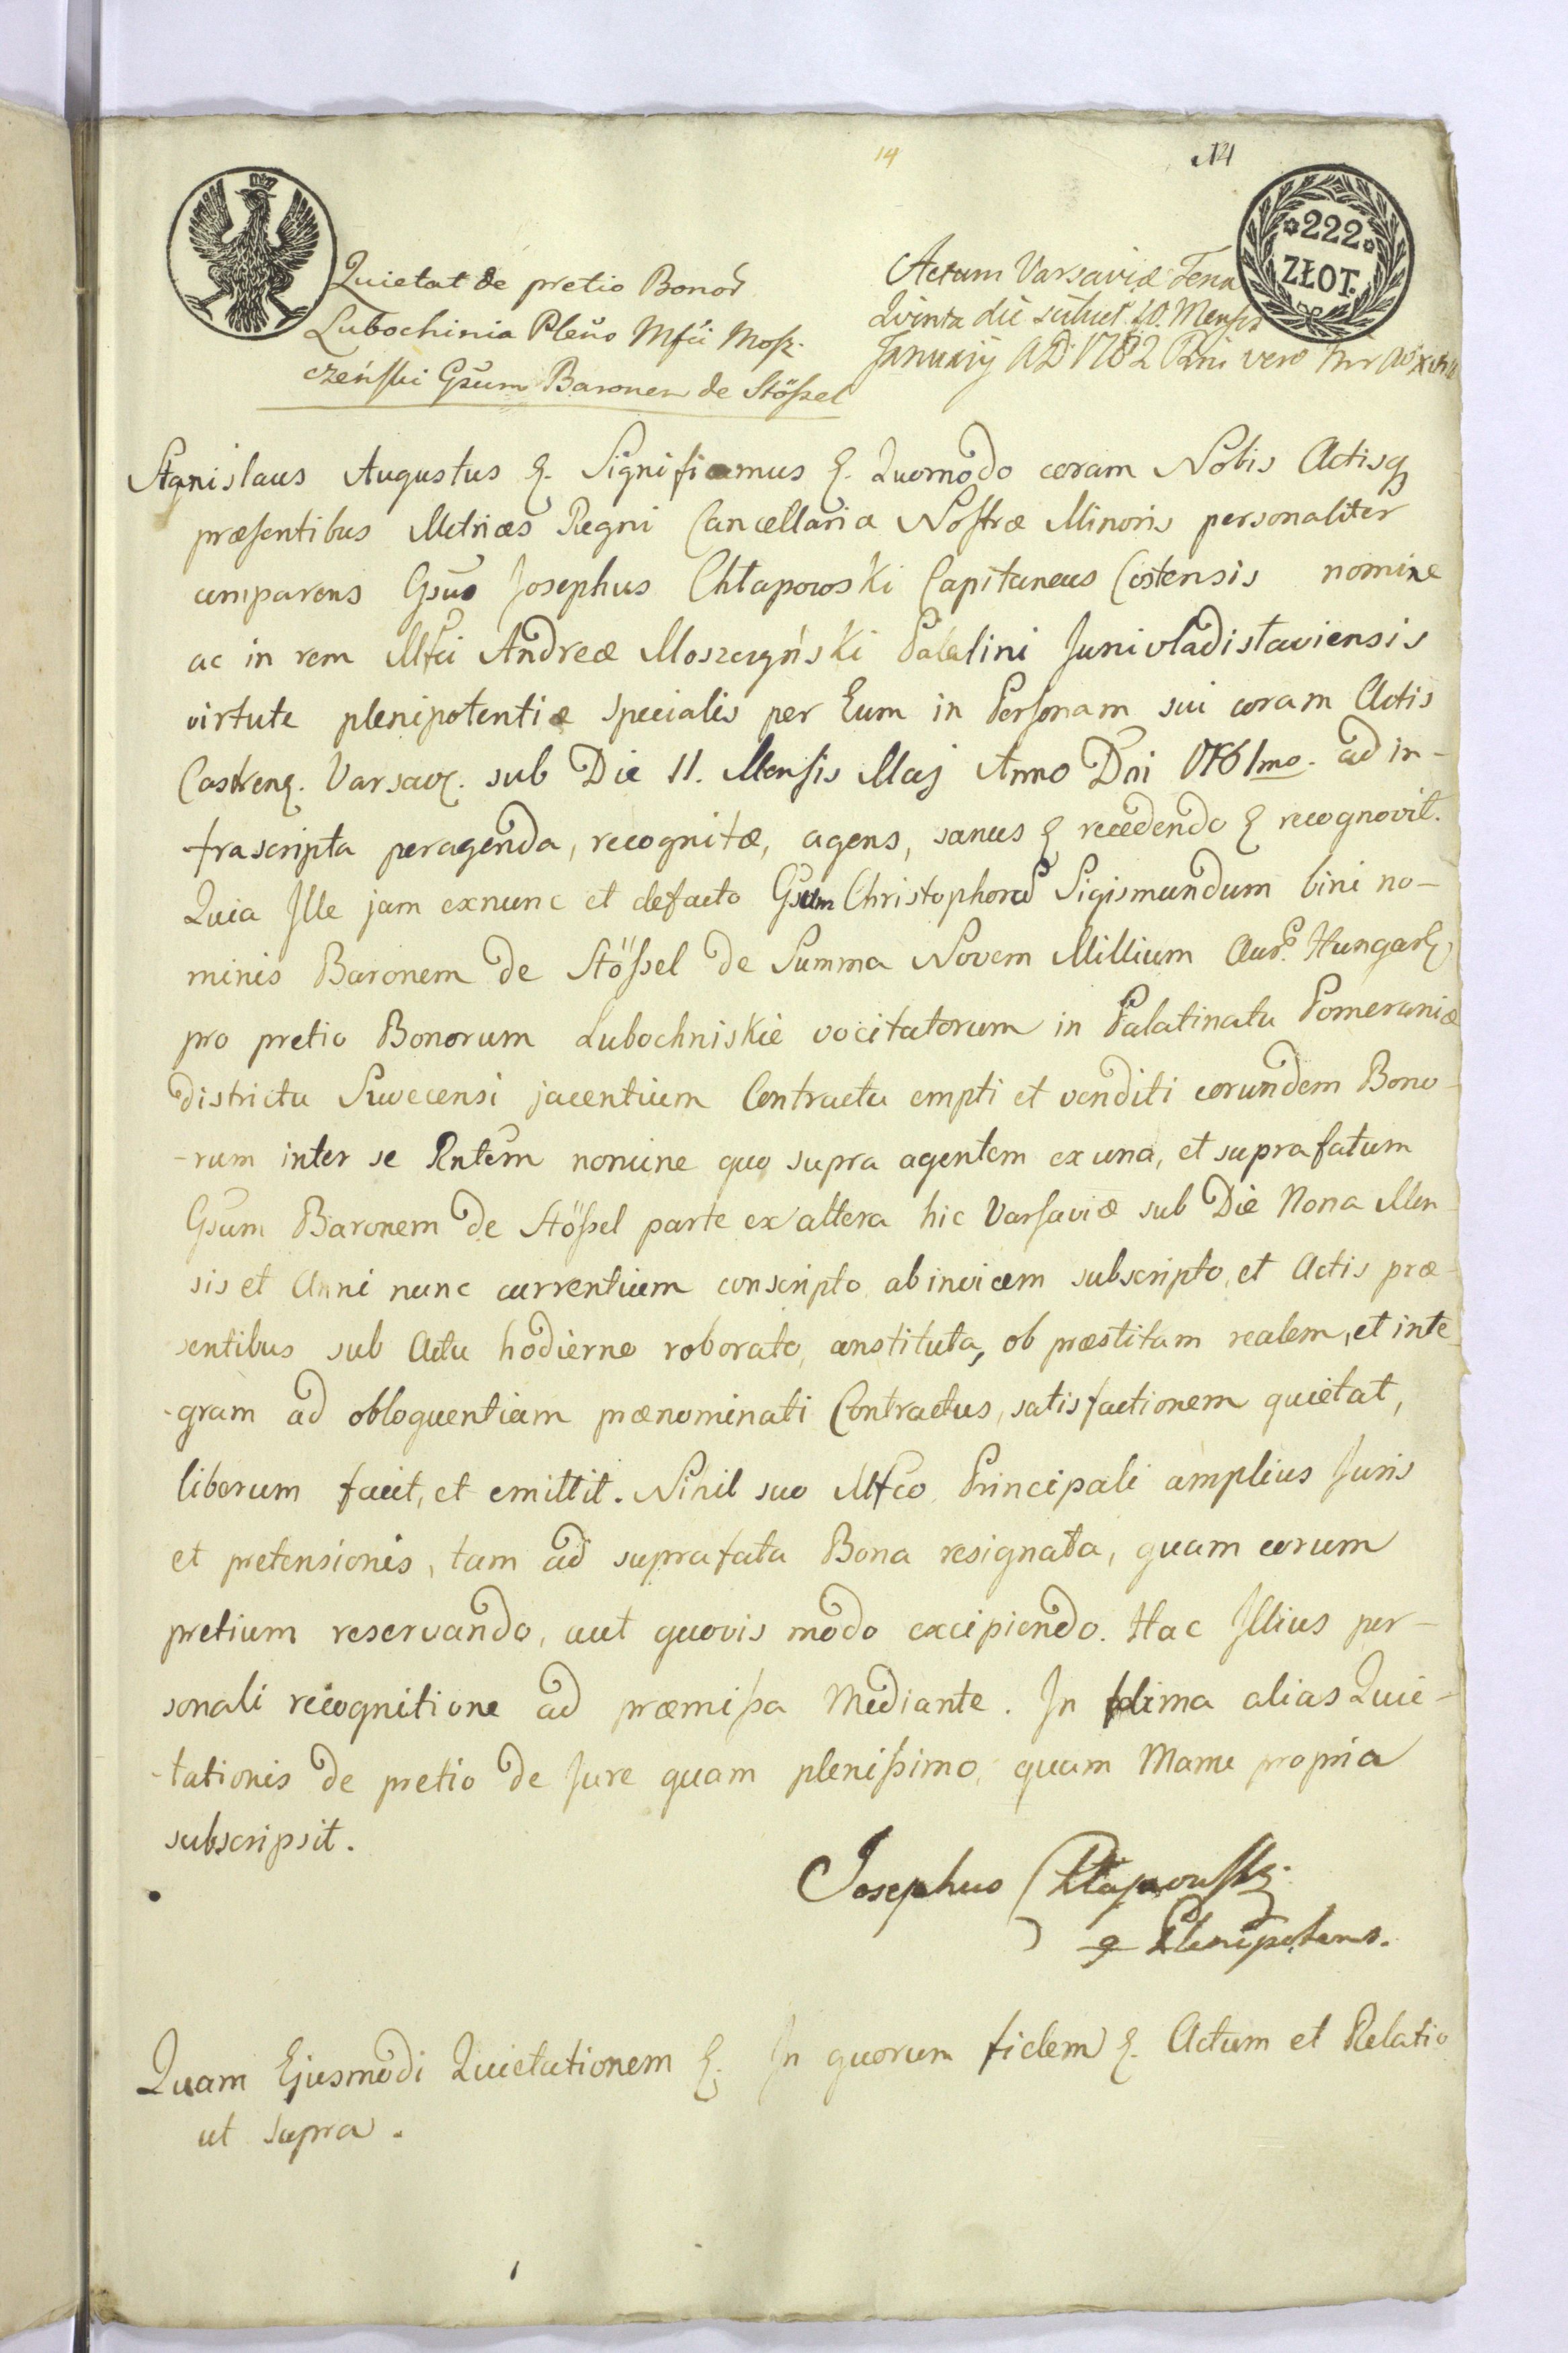 14
N4
222
ZŁOT.
Quietat de pretio Bonor̃
Lubochinia Plen̄o Mfci Mosz-
czeński Gsum Baronem de Stößel
Actum Varsaviæ Feria
Quinta die scilicet 10. Mensis
Januarij A D 1782 Rni vero Nri
Stanislaus Augustus &. Significamus &. Quomodo coram Nobis Actisq
præsentibus Metrices Regni Cancellariæ Nostræ Minoris personaliter
comparens Gsus Josephus Chłapowski Capitaneus Costensis nomine
ac in rem Mfci Andreæ Moszczyński Palatini Junivladislaviensis
virtute plenipotentiæ specialis per Eum in Personam sui coram Actis
Castren&. Varsav&. sub Die 11. Mensis Maj Anno Dni 1781mo. ad in-
frascripta peragenda, recognitæ, agens, sanus & recedendo & recognovit.
Quia Ille jam exnunc et defacto Gsum Christophorũ Sigismundum bini no-
minis Baronem de Stößel de Summa Novem Millium Aur. Hungar&
pro pretio Bonorum Lubochniskie vocitatorum in Palatinatu Pomeraniæ
districtu Swecensi jacentium Contractu empti et venditi eorundem Bono-
-rum inter se Rntem nomine quo supra agentem ex una, et suprafatum
Gsum Baronem de Stößel parte ex altera hic Varsaviæ sub Die Nona Men
sis et Anni nunc currentium conscripto ab invicem subscripto, et Actis præ-
sentibus sub Actu hodierno roborato, constituta, ob præstitam realem, et inte-
-gram ad obloquentiam prænominati Contractus, satisfactionem quietat,
liberum facit, et emittit. Nihil suo Mfco Principali amplius Juris
et pretensionis, tam ad suprafata Bona resignata, quam eorum
pretium reservando, aut quovis modo excipiendo. Hac Illius per-
sonali recognitione ad præmißa Mediante. In alias Quie-
-tationis de pretio de Jure quam plenißimo, quam Manu propria
subscripsit.
Josephus Chłapowski
Plenipotens.
Quam Ejusmodi Quietationem &. In quorum fidem &. Actum et Relatio
ut supra.